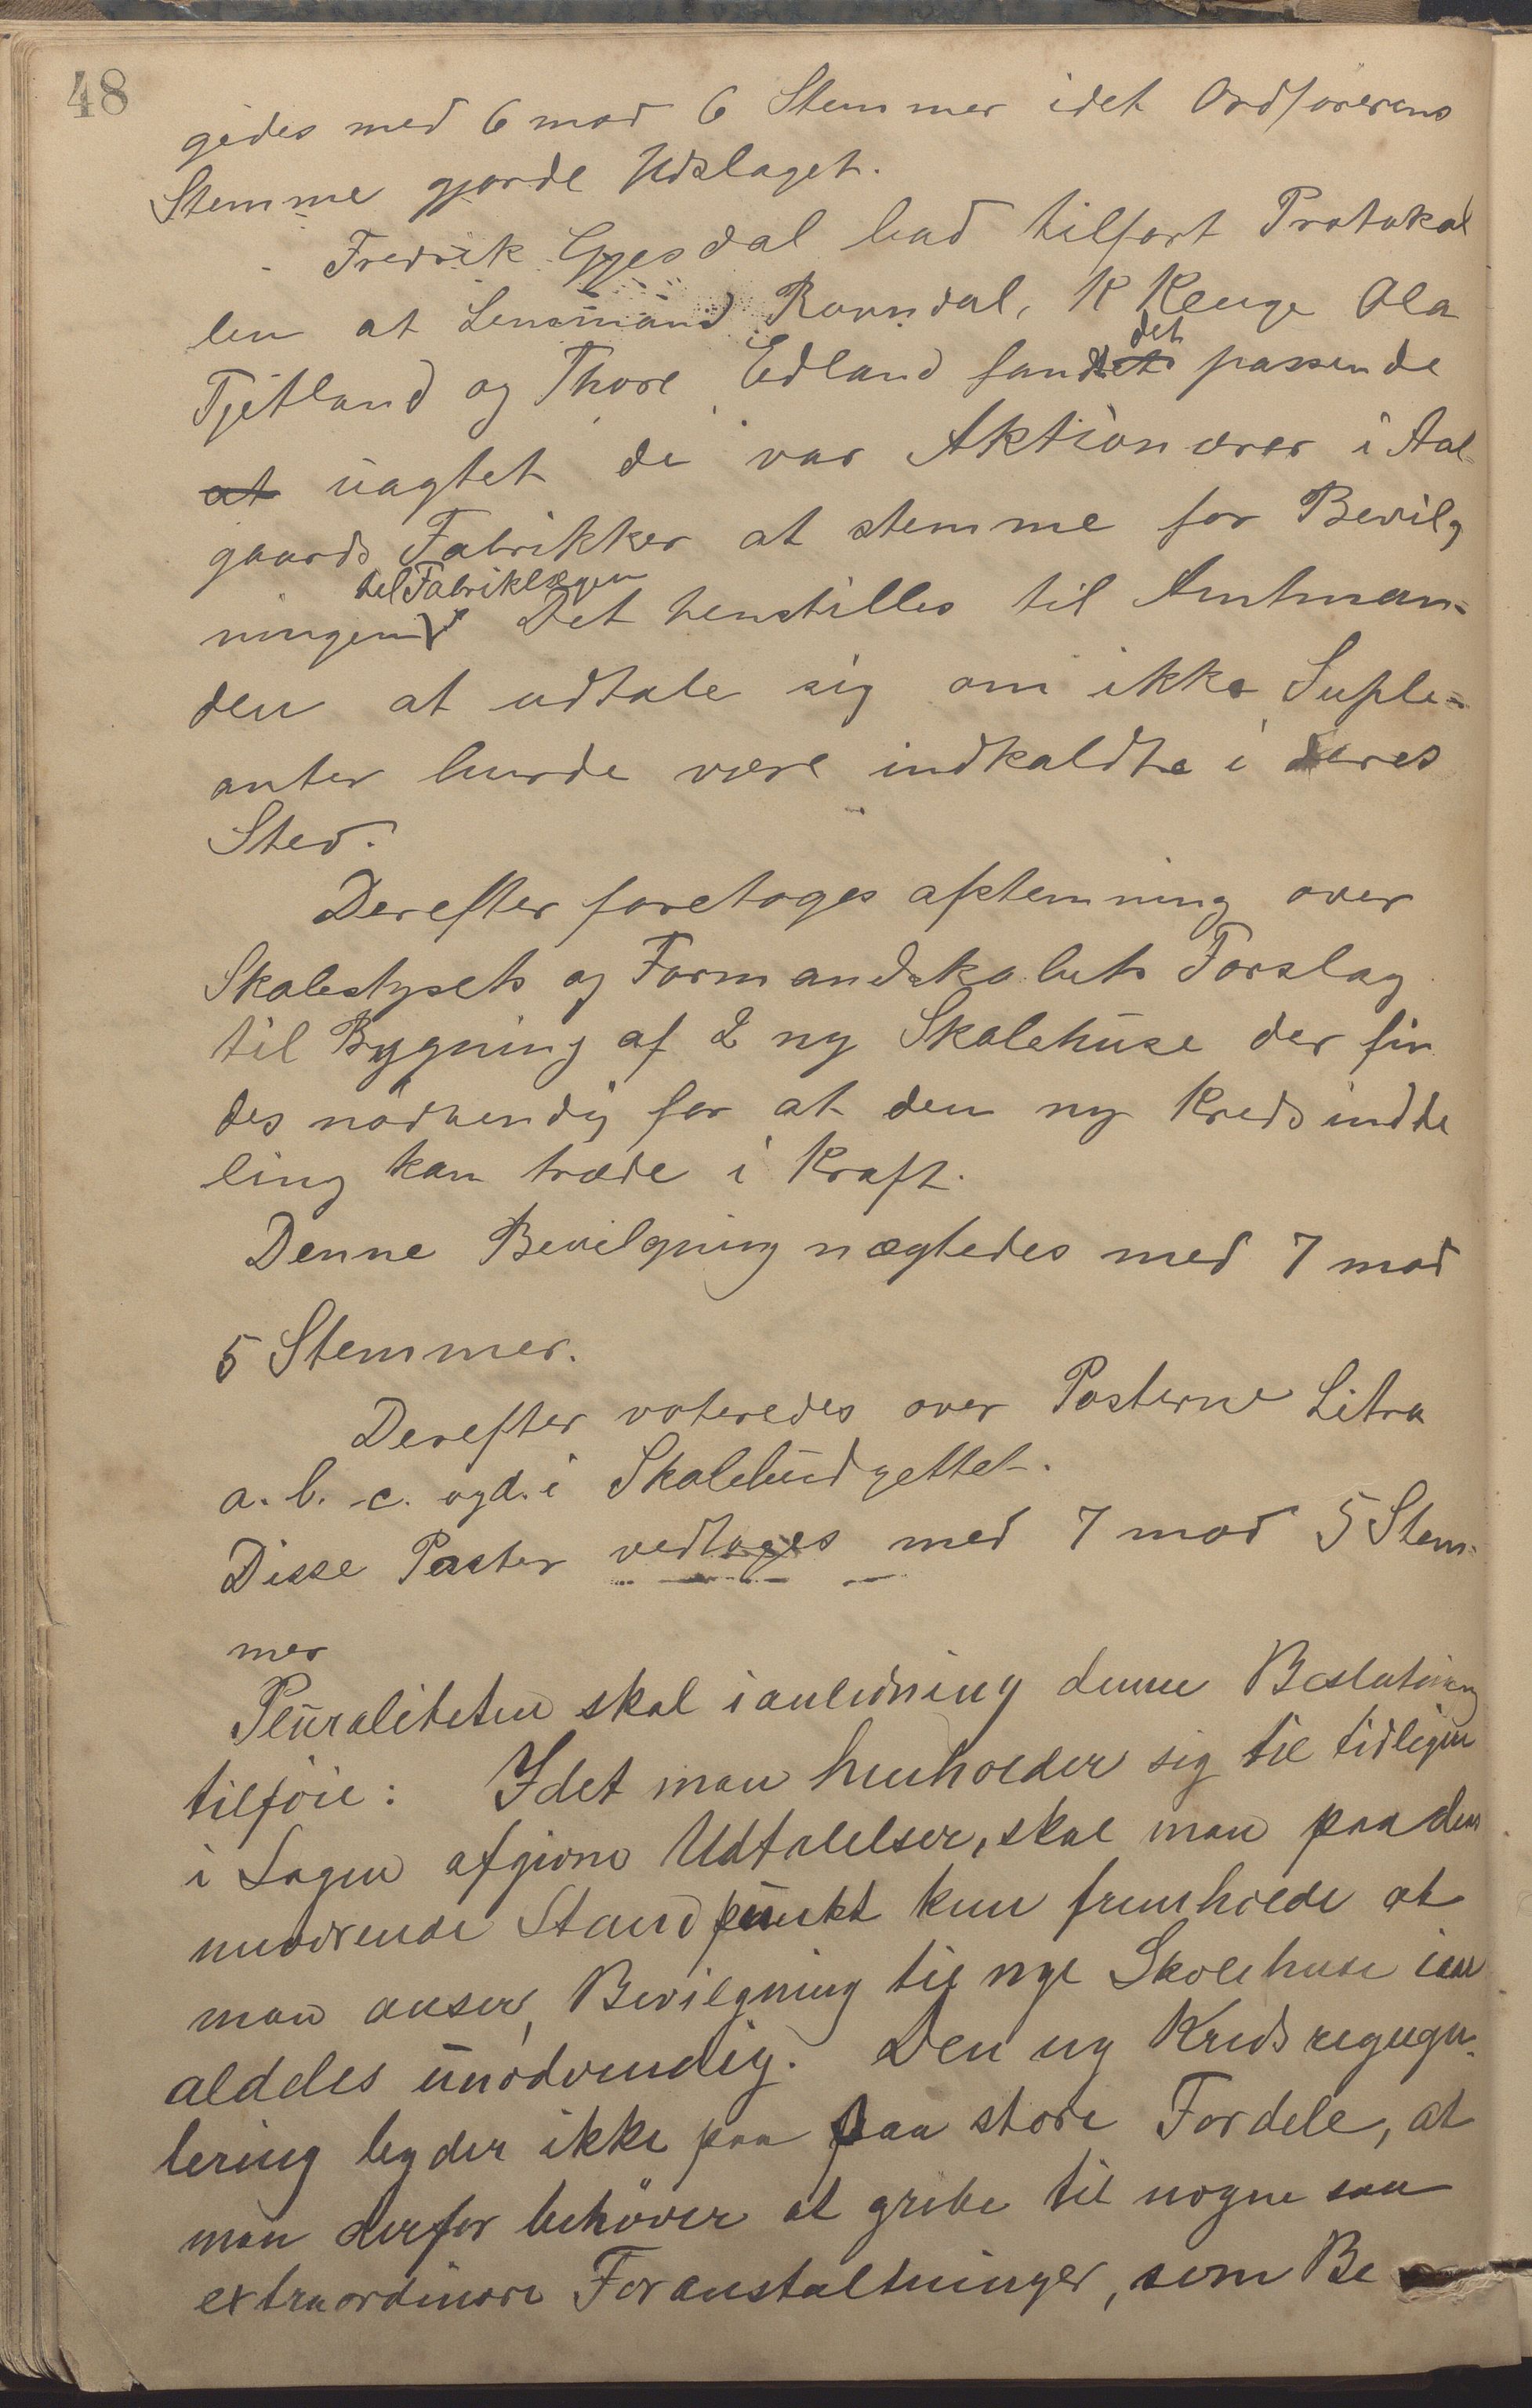 48
gedes med 6 mod 6 Stemmer idet Ordførerens
Stemme gjorde Udslaget.
Fredrik Gjesdal bad tilført Protokol
len at Lensmand Ravndal, K Kluge Ola
Tjetland og Thore Edland fandt det passende
at uagtet de var Aktionærer i Aal-
gaards Fabrikker at stemme for Bevilg
ningen til Fabriklægen. Det henstilles til Amtman-
den at udtale sig om ikke Suple-
anter burde være indkaldte i deres
Sted.
Derefter foretoges afstemning over
Skolestysets og Formandskabets Forslag
til Bygning af 2 ny Skolehuse der fin
des nødvendig for at den ny Kredsindde
ling kan træde i Kraft.
Denne Bevilgning nægtedes med 7 mod
5 Stemmer.
Derefter voteredes over Posterne Litra
a. b. c. og d. i Skolebudgettet.
Disse Poster vedtoges med 7 mod 5 Stem-
mer
Pluraliteten skal i anledning denne Beslutning
tilføie: Idet man henholder sig til tidligere
i Sagen afgivne Udtalelser, skal man paa det
nuværende Standpunkt kun fremholde at
man anser Bevilgning til nye Skolehuse iaar
aldeles unødvendig. Den ny Kredsregugu-
lering byder ikke paa saa store Fordele, at
man derfor behøver at gribe til nogne saa
extraordinære Foranstaltninger, som Be